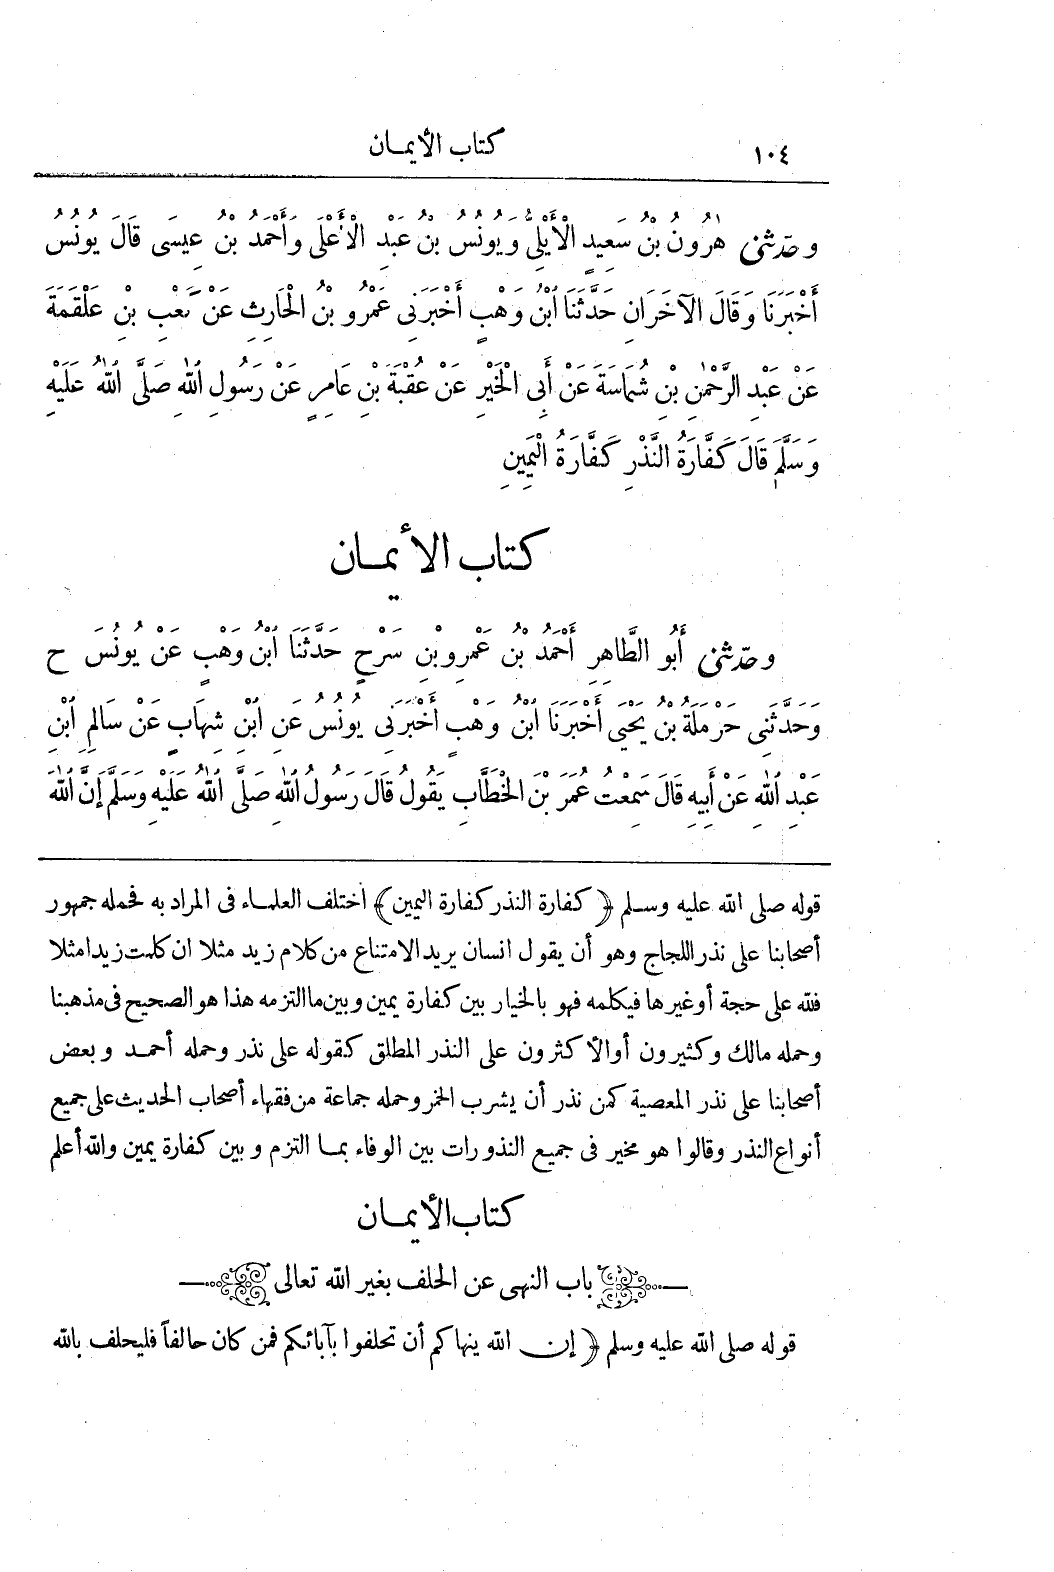 ١٠٤ كتاب الأيمان
وحدثني هٰرُونُ بْنُ سَعِيدٍ الْأَيْلِيُّ وَيُونُسُ بْنُ عَبْدِ الْأَعْلَى وَأَحْمَدُ بْنُ عِيسَى قَالَ يُونُسُ
أَخْبَرَنَا وَقَالَ الْآخَرَانِ حَدَّثَنَا ابْنُ وَهْبٍ أَخْبَرَنِي عَمْرُو بْنُ الْحَارِثِ عَنْ كَعْبِ بْنِ عَلْقَمَةَ
عَنْ عَبْدِ الرَّحْمٰنِ بْنِ شُمَاسَةَ عَنْ أَبِي الْخَيْرِ عَنْ عُقْبَةَ بْنِ عَامِرٍ عَنْ رَسُولِ اللّٰهِ صَلَّى اللّٰهُ عَلَيْهِ
وَسَلَّمَ قَالَ كَفَّارَةُ النَّذْرِ كَفَّارَةُ الْيَمِينِ
كتاب الأيمان
وحدثني أَبُو الطَّاهِرِ أَحْمَدُ بْنُ عَمْرِو بْنِ سَرْحٍ حَدَّثَنَا ابْنُ وَهْبٍ عَنْ يُونُسَ ح
وَحَدَّثَنِي حَرْمَلَةُ بْنُ يَحْيَى أَخْبَرَنَا ابْنُ وَهْبٍ أَخْبَرَنِي يُونُسُ عَنِ ابْنِ شِهَابٍ عَنْ سَالِمِ ابْنِ
عَبْدِ اللّٰهِ عَنْ أَبِيهِ قَالَ سَمِعْتُ عُمَرَ بْنَ الْخَطَّابِ يَقُولُ قَالَ رَسُولُ اللّٰهِ صَلَّى اللّٰهُ عَلَيْهِ وَسَلَّمَ إِنَّ اللّٰهَ
قوله صلى الله عليه وسلم ﴿كفارة النذر كفارة اليمين﴾ اختلف العلماء فى المراد به فحمله جمهور
أصحابنا على نذر اللجاج وهو أن يقول انسان يريد الامتناع من كلام زيد مثلا ان كلمت زيدا مثلا
فلله على حجة أو غيرها فيكلمه فهو بالخيار بين كفارة يمين وبين ما التزمه هذا هو الصحيح فى مذهبنا
وحمله مالك وكثيرون أو الأكثرون على النذر المطلق كقوله على نذر وحمله أحمد وبعض
أصحابنا على نذر المعصية كمن نذر أن يشرب الخمر وحمله جماعة من فقهاء أصحاب الحديث على جميع
أنواع النذر وقالوا هو مخير فى جميع النذورات بين الوفاء بما التزم وبين كفارة يمين والله أعلم
كتاب الأيمان
باب النهى عن الحلف بغير الله تعالى
قوله صلى الله عليه وسلم ﴿إن الله ينهاكم أن تحلفوا بآبائكم فمن كان حالفاً فليحلف بالله